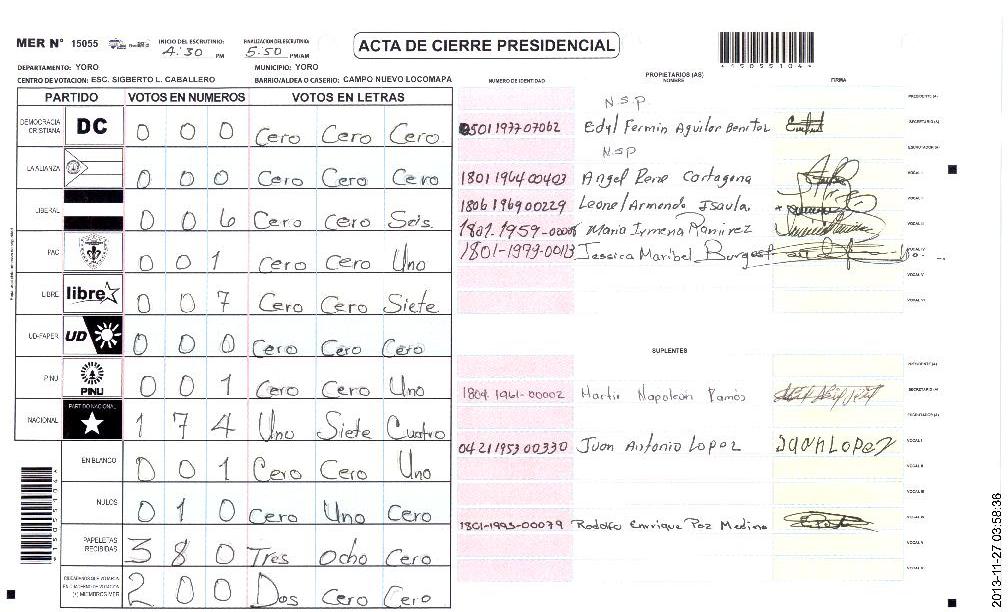 MER N° 15055
INICIO DEL ESCRUTINIO:
4:30 PM
FINALIZACION DEL ESCRUTINIO:
5:50 PM/AM
ACTA DE CIERRE PRESIDENCIAL
*150551044*
DEPARTAMENTO: YORO
MUNICIPIO: YORO
CENTRO DE VOTACION: ESC. SIGBERTO L. CABALLERO
BARRIO/ALDEA O CASERIO: CAMPO NUEVO LOCOMAPA
PARTIDO VOTOS EN NUMEROS VOTOS EN LETRAS
DEMOCRACIA CRISTIANA DC 0 0 0 Cero Cero Cero
LA ALIANZA 0 0 0 Cero Cero Cero
LIBERAL 0 0 6 Cero Cero Seis
PAC 0 0 1 Cero Cero Uno
LIBRE libre 0 0 7 Cero Cero Siete
UD-FAPER UD 0 0 0 Cero Cero Cero
PINU PINU 0 0 1 Cero Cero Uno
NACIONAL PARTIDO NACIONAL 1 7 4 Uno Siete Cuatro
EN BLANCO 0 0 1 Cero Cero Uno
NULOS 0 1 0 Cero Uno Cero
PAPELETAS RECIBIDAS 3 8 0 Tres Ocho Cero
CIUDADANOS QUE VOTARON EN CUADERNO DE VOTACION (+) MIEMBROS MER 2 0 0 Dos Cero Cero
PROPIETARIOS (AS)
NUMERO DE IDENTIDAD NOMBRE FIRMA
N.S.P PRESIDENTE (A)
0501 1977 07062 Edyl Fermin Aguilar Benitez SECRETARIO (A)
NSP ESCRUTADOR (A)
1801 1964 00403 Angel Rene Cartagena VOCAL I
1806 1969 00229 Leonel Armando Isaula. VOCAL II
1807-1959-00006 Maria Irmena Ramirez VOCAL III
1801-1979-00113 Jessica Maribel Burgos VOCAL IV
VOCAL V
VOCAL VI
SUPLENTES
PRESIDENTE (A)
1804-1961-00002 Martir Napoleón Ramos SECRETARIO (A)
ESCRUTADOR (A)
0421 1953 00330 Juan Antonio Lopez Juan Lopez VOCAL I
VOCAL II
VOCAL III
1801-1993-00079 Rodolfo Enrique Paz Medina VOCAL IV
VOCAL V
VOCAL VI
2013-11-27 03:58:36